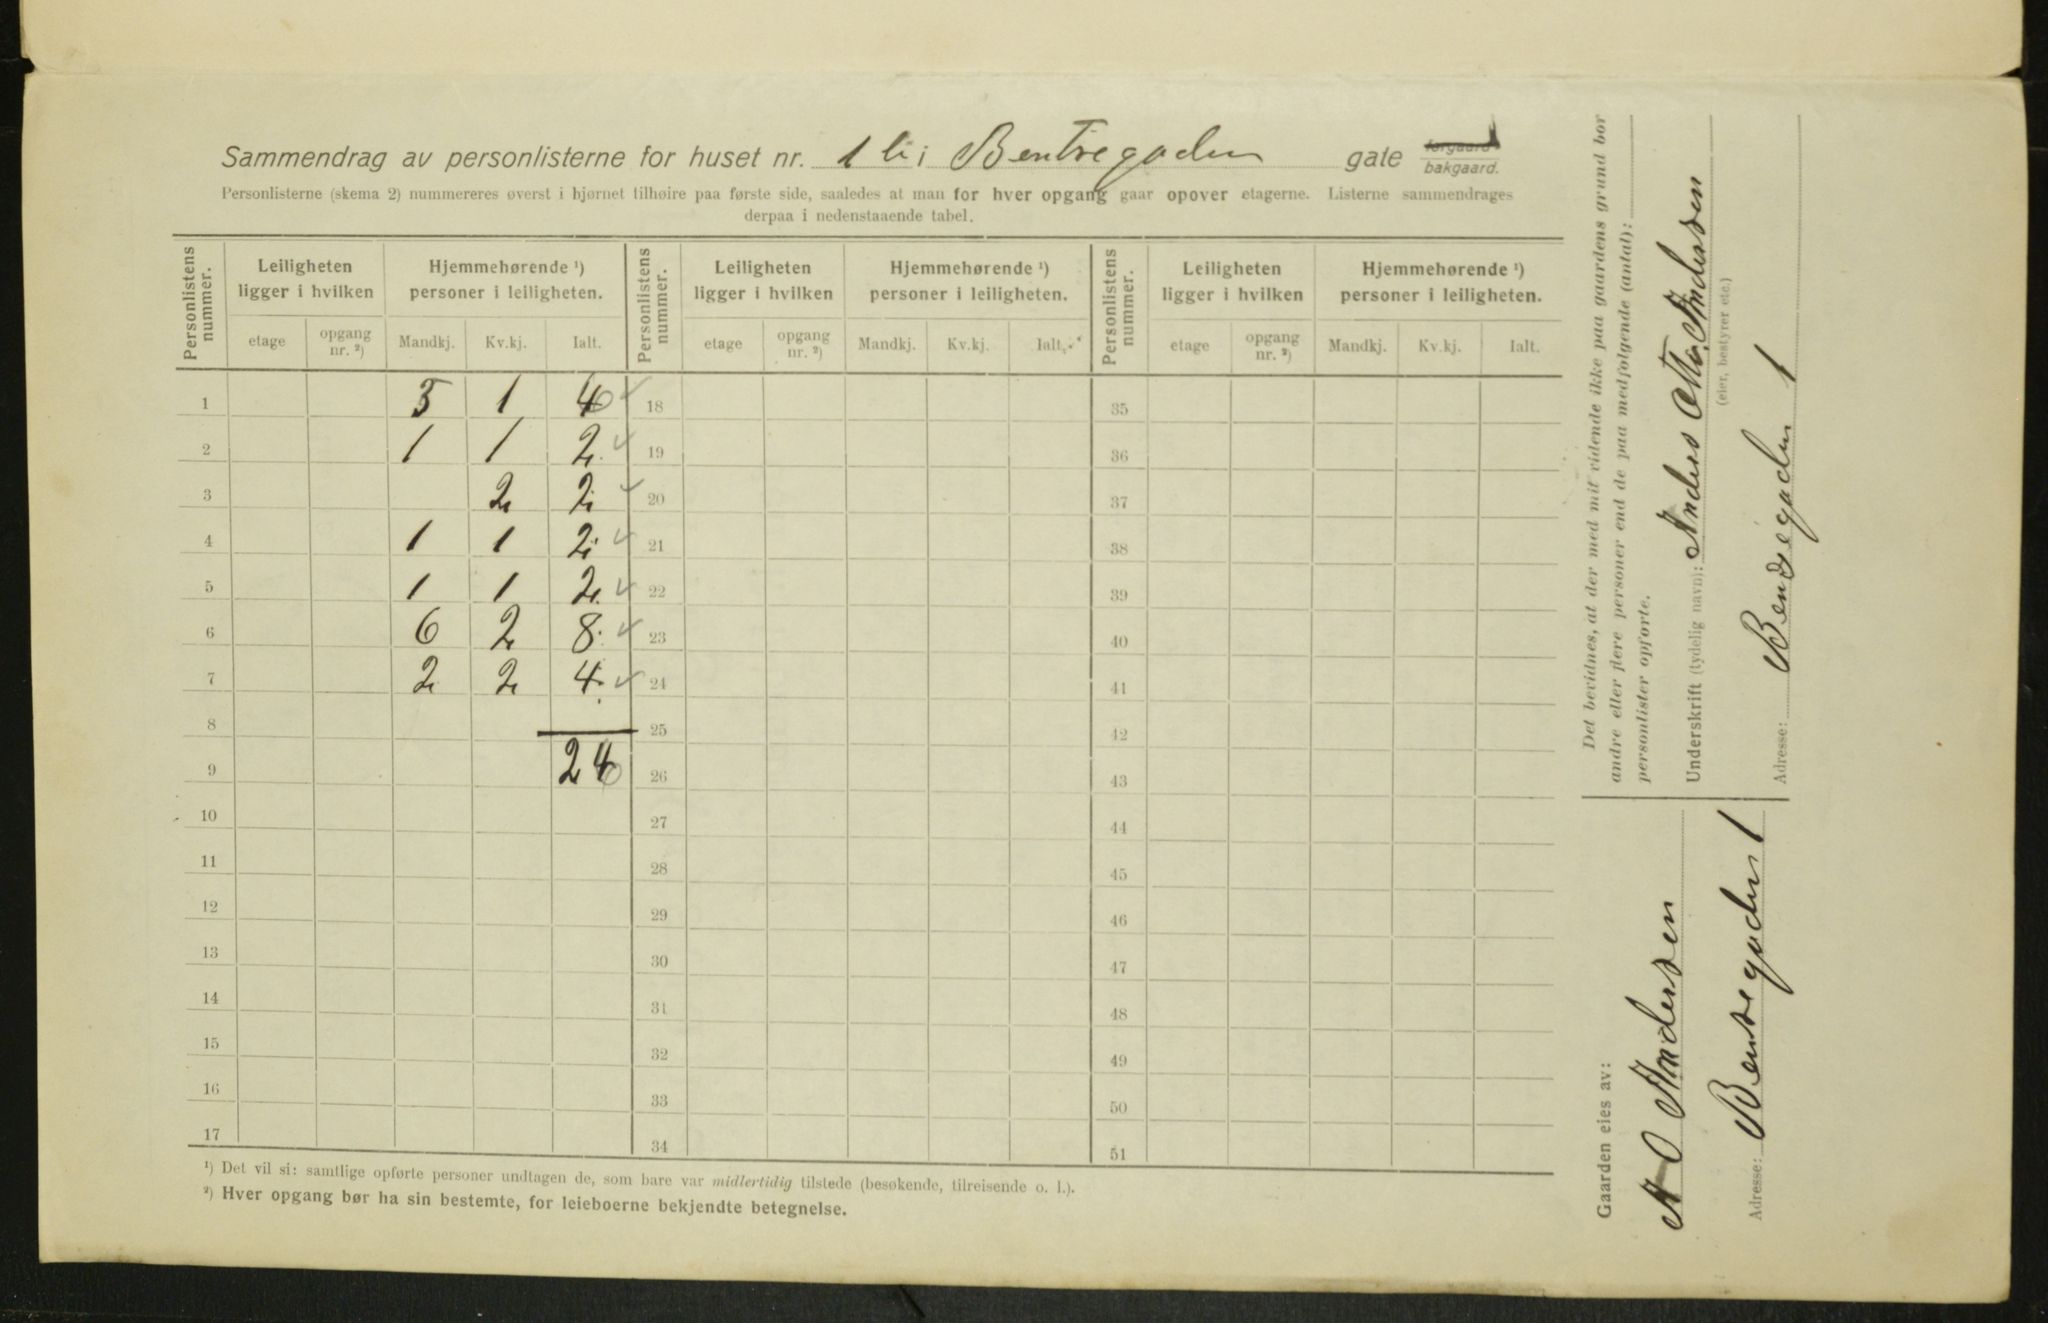 Sammendrag av personlisterne for huset nr. 1 b i Bentsegaden gate forgaard bakgaard.
Personlisterne (skema 2) nummereres øverst i hjørnet tilhøire paa første side, saaledes at man for hver opgang gaar opover etagerne. Listerne sammendrages
derpaa i nedenstaaende tabel.
Personlistens nummer. Leiligheten ligger i hvilken Hjemmehørende ¹) personer i leiligheten. Personlistens nummer. Leiligheten ligger i hvilken Hjemmehørende ¹) personer i leiligheten. Personlistens nummer. Leiligheten ligger i hvilken Hjemmehørende ¹) personer i leiligheten.
etage opgang nr. ²) Mandkj. Kv.kj. Ialt. etage opgang nr. ²) Mandkj. Kv.kj. Ialt. etage opgang nr. ²) Mandkj. Kv.kj. Ialt.
1 1 4 18 35
2 1 1 2 19 36
3 2 2 20 37
4 1 1 2 21 38
5 1 1 2 22 39
6 6 2 8 23 40
7 2 2 4 24 41
8 25 42
9 24 26 43
10 27 44
11 28 45
12 29 46
13 30 47
14 31 48
15 32 49
16 33 50
17 34 51
¹) Det vil si: samtlige opførte personer undtagen de, som bare var midlertidig tilstede (besøkende, tilreisende o. l.).
²) Hver opgang bør ha sin bestemte, for leieboerne bekjendte betegnelse.
Det bevidnes, at der med mit vidende ikke paa gaardens grund bor
andre eller flere personer end de paa medfølgende (antal):
personlister opførte.
Underskrift (tydelig navn): Anders Otto Andersen
(eier, bestyrer etc.)
Adresse: Bentsegaden 1
Gaarden eies av:
A O Andersen
Adresse: Bentsegaden 1